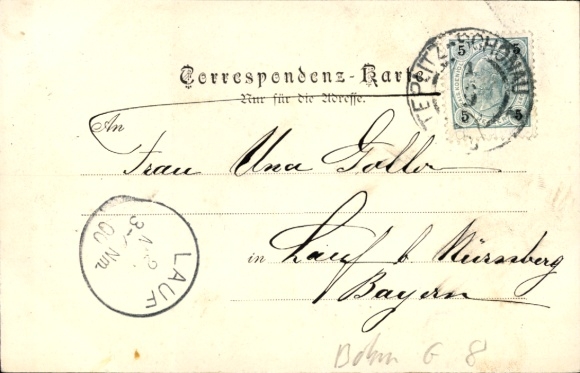 Correspondenz-Karte
Nur für die Adresse.
TEPLITZ-SCHÖNAU
5 5
5 5
An
Frau Una Goller
in Lauf b. Nürnberg
Bayern
LAUF
3-4 Nm.
00
Böhm G 8